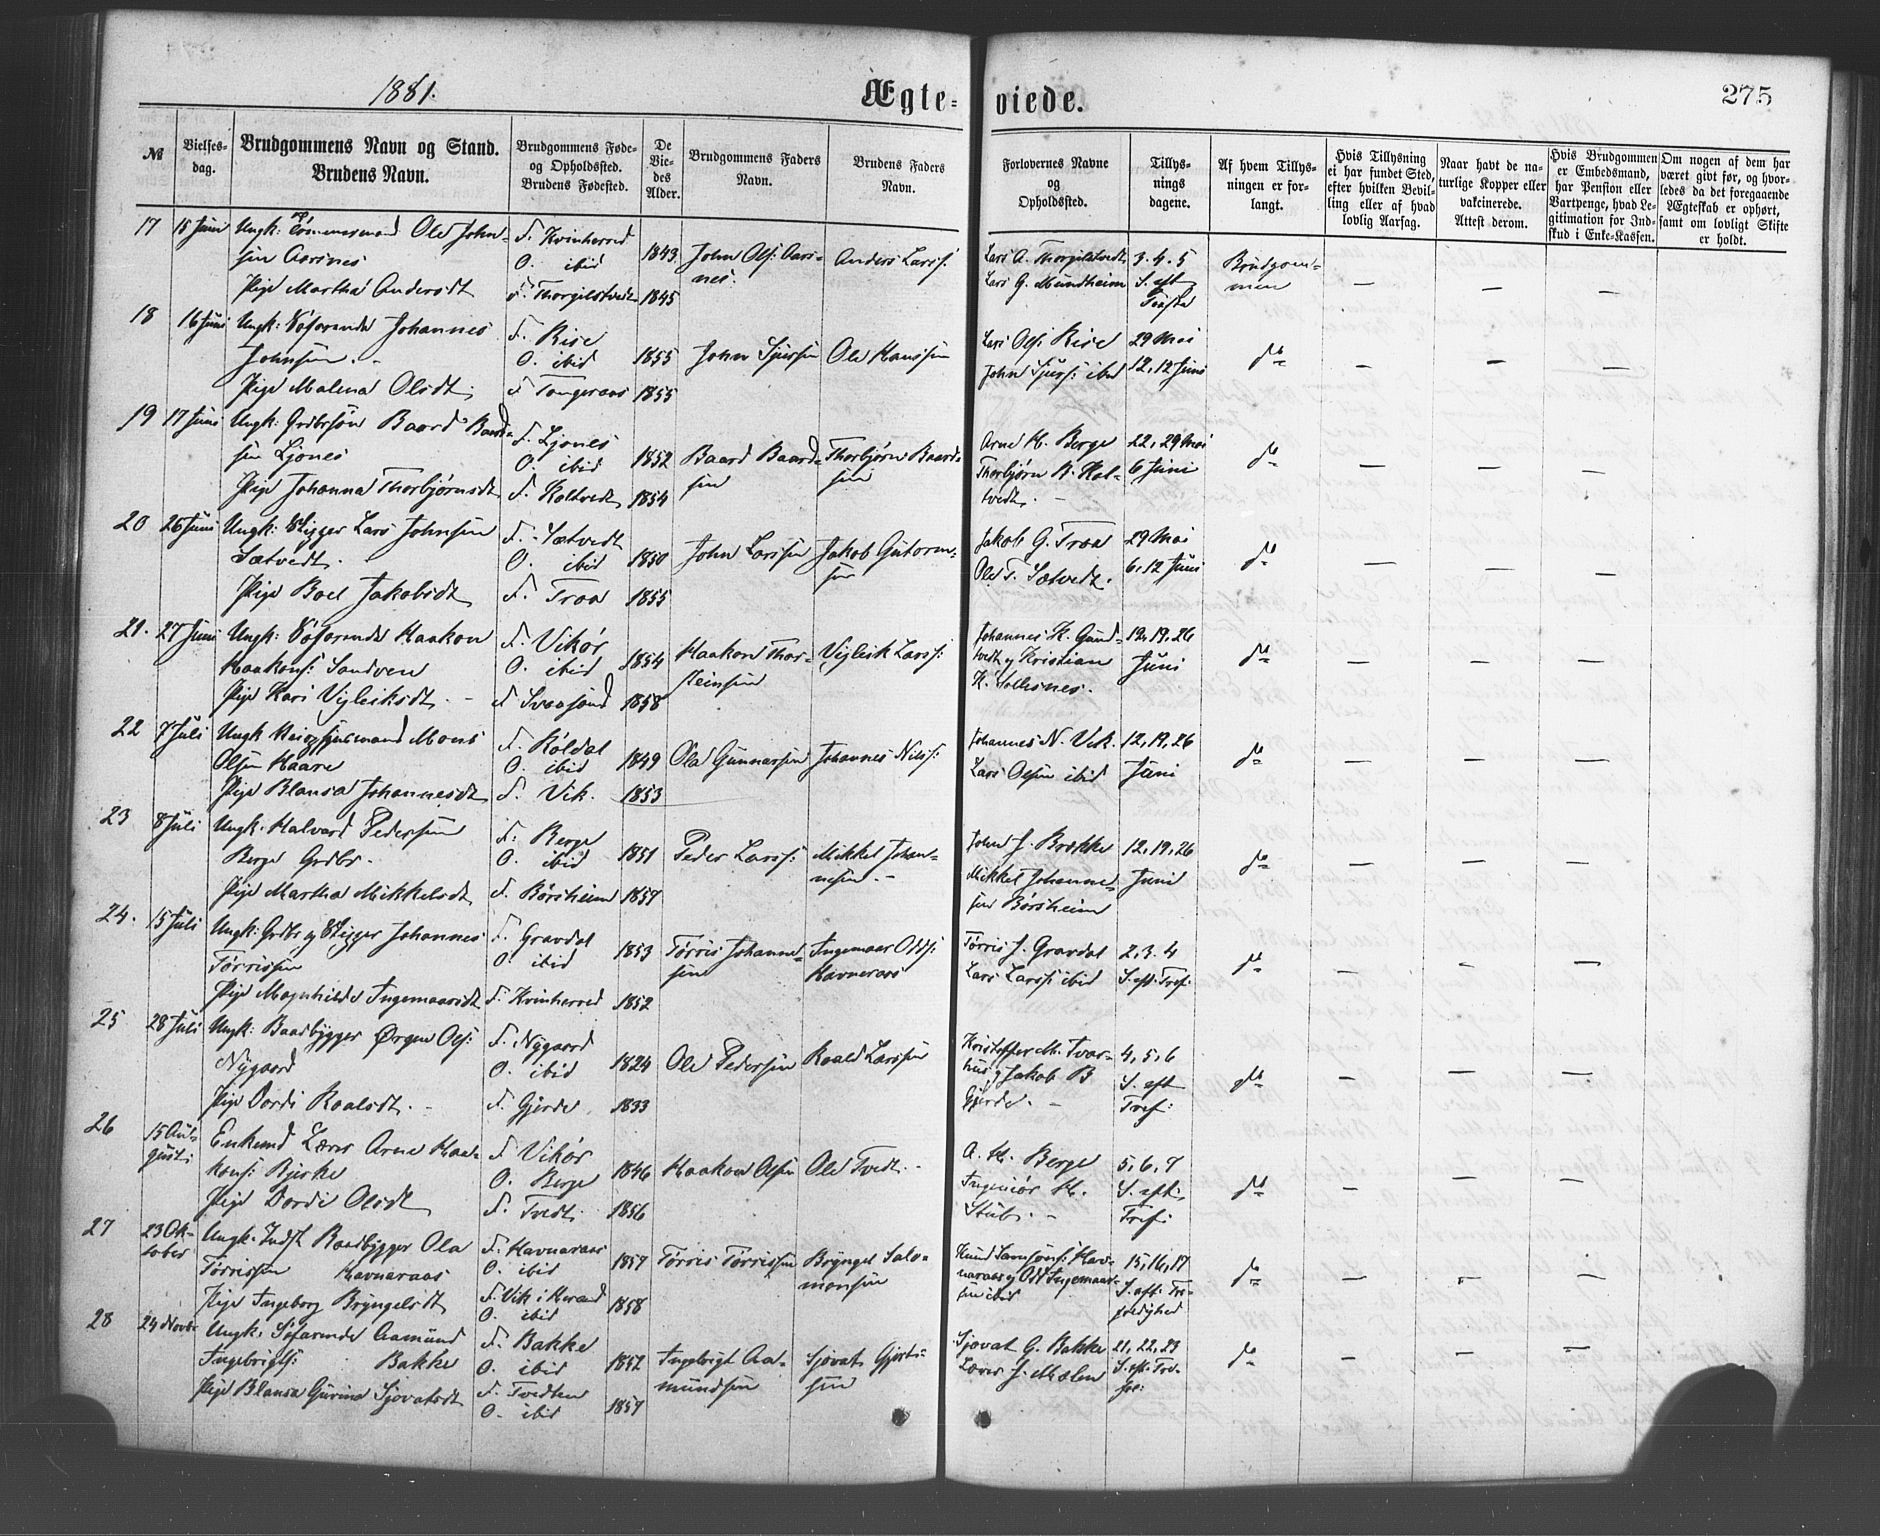 1881.
Ægte-
viede.
275
№
Vielses-
dag.
Brudgommens Navn og Stand.
Brudens Navn.
Brudgommens Føde-
og Opholdssted.
Brudens Fødested.
De
Vie-
des
Alder.
Brudgommens Faders
Navn.
Brudens Faders
Navn.
Forlovernes Navne
og
Opholdssted.
Tillys-
nings
dagene.
Af hvem Tillys-
ningen er for-
langt.
Hvis Tillysning
ei har fundet Sted,
efter hvilken Bevil-
ling eller af hvad
lovlig Aarsag.
Naar havt de na-
turlige Kopper eller
vakcinerede.
Attest derom.
Hvis Brudgommen
er Embedsmand,
har Pension eller
Vartpenge, hvad Le-
gitimation for Ind-
skud i Enke-Kassen.
Om nogen af dem har
været givt før, og hvor-
ledes da det foregaaende
Ægteskab er ophørt,
samt om lovligt Skifte
er holdt.
17 15 Juni Ungk: Tømmermand Ole John-
sen Aarsnes
Pige Martha Andersdt
F. Kvinherred
O. ibid
F. Thorgilstvedt
1843
1845
John Ols: Aars-
nes.
Anders Larss:
Lars A. Thorgilstvedt
Lars G. Mundheim
3. 4. 5
S. eft
Brudgom-
men
18 16 Juni Ungk: Søfarende Johannes
Johnsen. -
Pige Malena Olsdt.
F. Rise
O. ibid
F. Tangeraas
1855
1855
John Sjursen
Ole Hanssen
Lars Ols: Rise
John Sjurs: ibid
29 Mai
12, 12 Juni
do
19 17 Juni Ungk: Grdbrsøn Baard Baard-
sen Ljones
Pige Johanna Thorbjørnsdt
F. Ljones
O. ibid
F. Holtvedt
1852
1854
Baard Baard-
sen
Thorbjørn Baard-
sen
Arne H. Berge
Thorbjørn B. Hol-
tvedt. -
22, 29 Mai
6 Juni
do
20 26 Juni Ungk: Lars Johnsen
Sætvedt.
Pige Boel Jakobsdt
F. Sætvedt
O. ibid
F. Troa
1850
1855
John Larssen
Jakob Gutorm-
sen
Jakob G. Troa
Ole T. Sætvedt.
29 Mai
6, 12 Juni
do
21. 27 Juni Ungk: Søfarende Haakon
Haakons: Sandven
Pige Kari Vigleiksdt. -
F. Vikør
O. ibid
F. Svaasand
1854
1858
Haakon Thor-
steinsen
Vigleik Larss:
Johannes H. Gund-
tvedt og Kristian
H. Solhsnes.
12, 19, 26
Juni
do
22 7 Juli Ungk Mons
Olsen Haare
Pige Blansa Johannesdt
F. Røldal
O. ibid
F. Vik.
1849
1853
Ola Gunnarsen
Johannes Nilss:
Johannes N. Vik.
Lars Olsen ibid
12, 19, 26
Juni
do
23 8 Juli Ungk. Halvard Pedersen
Berge Grdbr.
Pige Martha Mikkelsdt.
F. Berge
O. ibid
F. Børsheim
1851
1857
Peder Larss:
Mikkel Johan-
nesen. -
John J. Brække
Mikkel Johanne-
sen Børsheim
12, 19, 26
Juni
do
24. 15 Juli Ungk: Grdbr og Johannes
Tørrissen
Pige Magnhilde Ingemaarsdt
F. Gravdal
O. ibid
F. Kvinherred
1853
1852
Tørris Johanne-
sen
Ingemaar Odds:
Havneraas
Tørris J. Gravdal
Lars Larss: ibid
2, 3. 4
S. eft: Tref:
do
25 28 Juli Ungk: Baadbygger Ørgen Ols:
Nygaard
Pige Dordi Roalsdt. -
F. Nygaard
O. ibid
F. Gjerde
1824
1833
Ole Pedersen
Roald Larssen
Kristoffer M. Tvar-
hus og Jakob B
Gjerde. -
4, 5, 6
S. eft
Tref:
do
26 15 Au-
gust: Enkemd Lærer Arne Haa-
kons: Bjerke
Pige Dordi Olsdt
F. Vikør
O. Berge
F. Tvedt
1846
1856
Haakon Olsen
Ole Tvedt. -
A. H. Berge
Ingeniør H.
Stub. -
5, 6, 7
S. eft:
Tref:
do
27 23 Ok-
tober Ungk. Indst Baadbygger Ola
Tørrissen Havnaraas
Pige Ingeborg Bryngelsdt
F. Havnaraas
O. ibid
F. Vik i Herand
O. ibid
1857
1858
Tørris Tørrissen
Bryngel Salo-
monsen
Knud Samsons: Hav-
naraas og Odd Ingemaar-
sen ibid
15, 16, 17
S. eft: Tre-
foldighed
do
28 24 Novbr Ungk: Søfarende Aamund
Ingebrigts: Bakke
Pige Blansa Gurina Sjovatsdt
F. Bakke
O. ibid
F. Tvedten
O. ibid
1852
1857
Ingebrigt Aa-
mundsen
Sjovat Gjert-
sen
Sjovat G. Bakke
Lærer J. Mælen
21, 22, 23
S. eft. Tre-
fol:
do